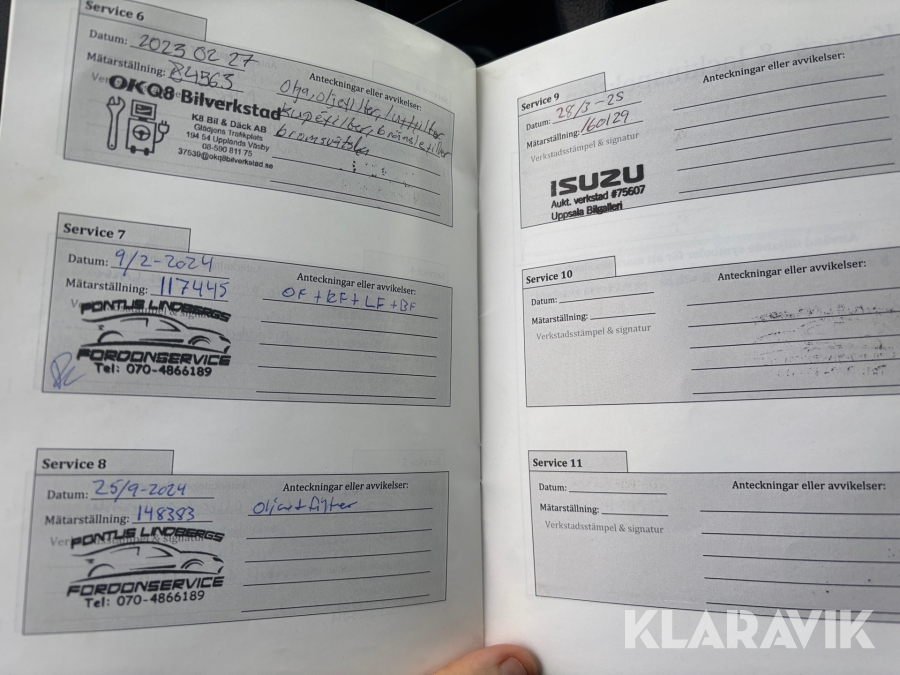 Service 6
Datum: 2023 02 27
Mätarställning: 84563
Anteckningar eller avvikelser:
Olja, oljefilter, luftfilter
kupefilter, Bränslefilter
bromsvätska
OKQ8 Bilverkstad
K8 Bil & Däck AB
Glädjens Trafikplats
194 54 Upplands Väsby
08-590 811 75
37539@okq8bilverkstad.se
Service 7
Datum: 9/2-2024
Mätarställning: 117445
Anteckningar eller avvikelser:
OF + KF + LF + BF
PONTUS LINDBERGS
FORDONSERVICE
Tel: 070-4866189
Service 8
Datum: 25/9-2024
Mätarställning: 148383
Anteckningar eller avvikelser:
Olja + filter
PONTUS LINDBERGS
FORDONSERVICE
Tel: 070-4866189
Service 9
Datum: 28/3-25
Mätarställning: 160129
Verkstadsstämpel & signatur
Anteckningar eller avvikelser:
ISUZU
Aukt. verkstad #75607
Uppsala Bilgalleri
Service 10
Datum:
Mätarställning:
Verkstadsstämpel & signatur
Anteckningar eller avvikelser:
Service 11
Datum:
Mätarställning:
Verkstadsstämpel & signatur
Anteckningar eller avvikelser:
KLARAVIK